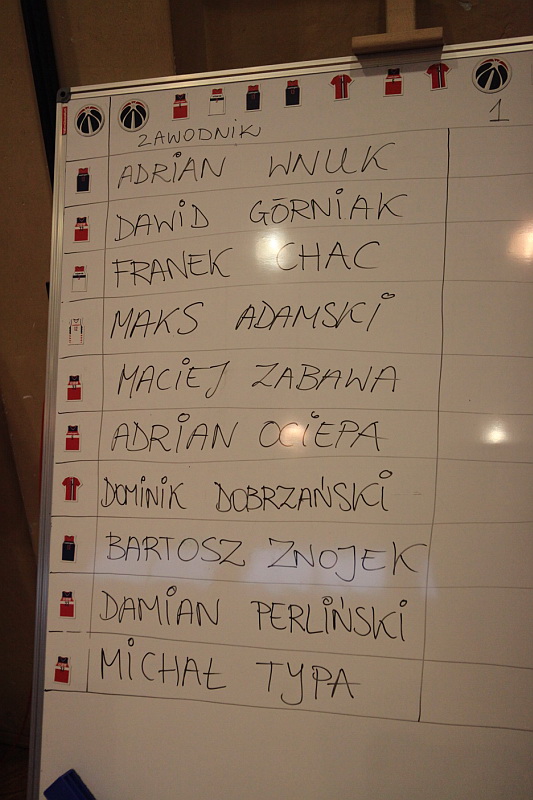 1
ZAWODNIK
ADRIAN WNUK
DAWID GÓRNIAK
FRANEK CHAC
MAKS ADAMSKI
MACIEJ ZABAWA
ADRIAN OCIEPA
DOMINIK DOBRZAŃSKI
BARTOSZ ZNOJEK
DAMIAN PERLIŃSKI
MICHAŁ TYPA